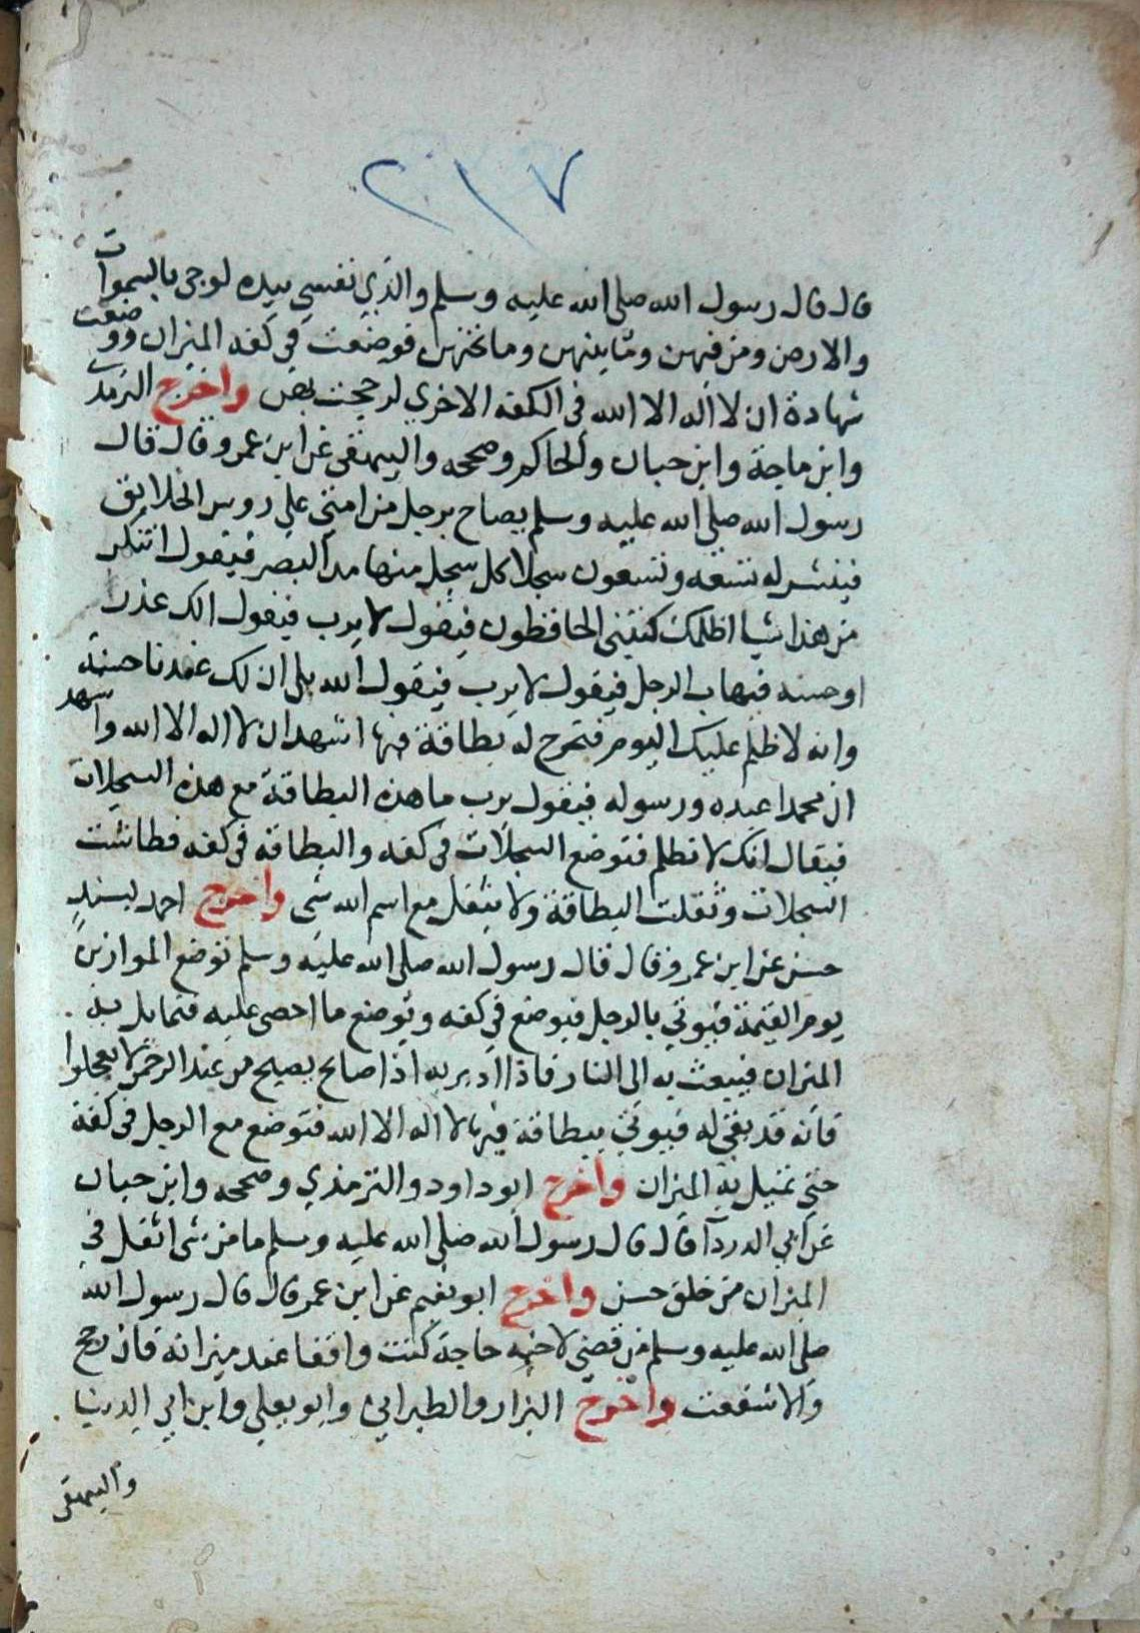 ٢١٧
قال قال رسول الله صلى الله عليه وسلم والذي نفسي بيده لو جئ بالسموات
والارض ومن فيهن وما بينهن وما تحتهن فوضعت في كفه الميزان ووضعت
شهادة ان لا اله الا الله في الكفه الاخري لرجحت بهن واخرج الترمذي
وابن ماجة وابن حبان والحاكم وصححه والبيهقي عن ابن عمرو قال قال
رسول الله صلى الله عليه وسلم يصاح برجل من امتي علي روس الخلايق
فينشر له تسعه وتسعون سجلا كل سجل منها مد البصر فيقول اتنكر
من هذا شيا اظلمك كتبتي الحافظون فيقول لا يرب فيقول الك عذر
او حسنه فيهاب الرجل فيقول لا يرب فيقول الله بلى ان لك عندنا حسنة
وانه لا ظلم عليك اليوم فتخرج له بطاقة فيها اشهد ان لا اله الا الله واشهد
ان محمدا عبده ورسوله فيقول يرب ما هذه البطاقة مع هذه السجلات
فيقال انك لا تظلم فتوضع السجلات في كفه والبطاقه في كفه فطاشت
السجلات وثقلت البطاقة ولا يثقل مع اسم الله شي واخرج احمد بسند
حسن عن ابن عمرو قال قال رسول الله صلى الله عليه وسلم توضع الموازين
يوم القيمة فيوتي بالرجل فيوضع في كفه ويوضع ما احصى عليه فتمايل به
الميزان فيبعث به الى النار فاذا ادبر به اذا صائح يصيح من عند الرحمن لا تعجلوا
فانه قد بقي له فيوتي ببطاقة فيها لا اله الا الله فتوضع مع الرجل في كفة
حتي تميل به الميزان واخرج ابو داود والترمذي وصححه وابن حبان
عن ابي الدردآ قال قال رسول الله صلى الله عليه وسلم ما من شي اثقل في
الميزان من خلق حسن واخرج ابو نعيم عن ابن عمر قال قال رسول الله
صلى الله عليه وسلم من قضي لاخيه حاجة كنت واقفا عند ميزانه فان رجح
والا شفعت واخرج البزار والطبراني وابو يعلي وابن ابي الدنيا
والبيهقي